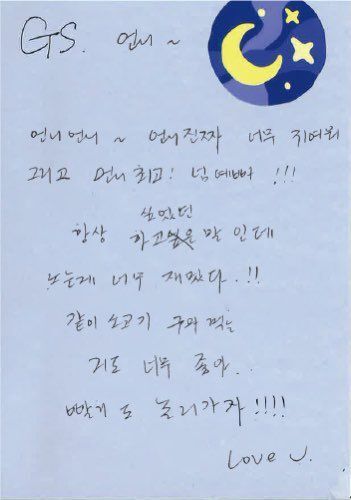 GS. 언니 ~
언니언니 ~ 언니진짜 너무 귀여워
그리고 언니최고! 넘예뻐 !!!
싶었던
항상 하고 말 인데
노는게 너무 재밌다.!!
같이 소고기 구워 먹는
거도 너무 좋아..
빨리 또 놀러가자!!!!
Love U.